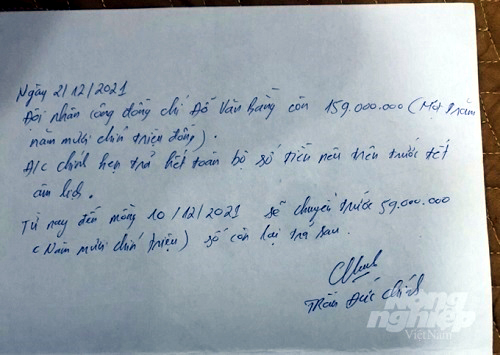 Ngày 2/12/2021
Đội nhân công đồng chí Đỗ Văn Bằng còn 159.000.000 (Một trăm
năm mươi chín triệu đồng).
A/c chính hẹn trả hết toàn bộ số tiền nêu trên trước tết
âm lịch.
Từ nay đến mồng 10/12/2021 sẽ chuyển trước 59.000.000
(Năm mươi chín triệu) số còn lại trả sau.
Trần Đức Chính
Nông
nghiệp
Việt Nam